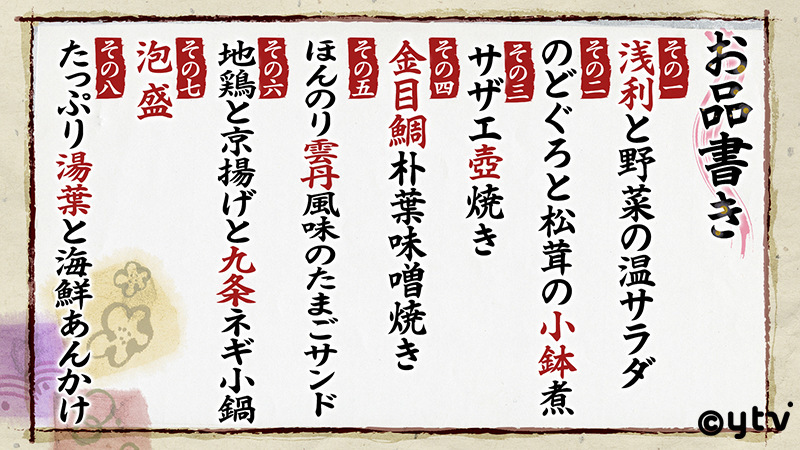 お品書き
その一
浅利と野菜の温サラダ
その二
のどぐろと松茸の小鉢煮
その三
サザエ壺焼き
その四
金目鯛朴葉味噌焼き
その五
ほんのり雲丹風味のたまごサンド
その六
地鶏と京揚げと九条ネギ小鍋
その七
泡盛
その八
たっぷり湯葉と海鮮あんかけ
©ytv